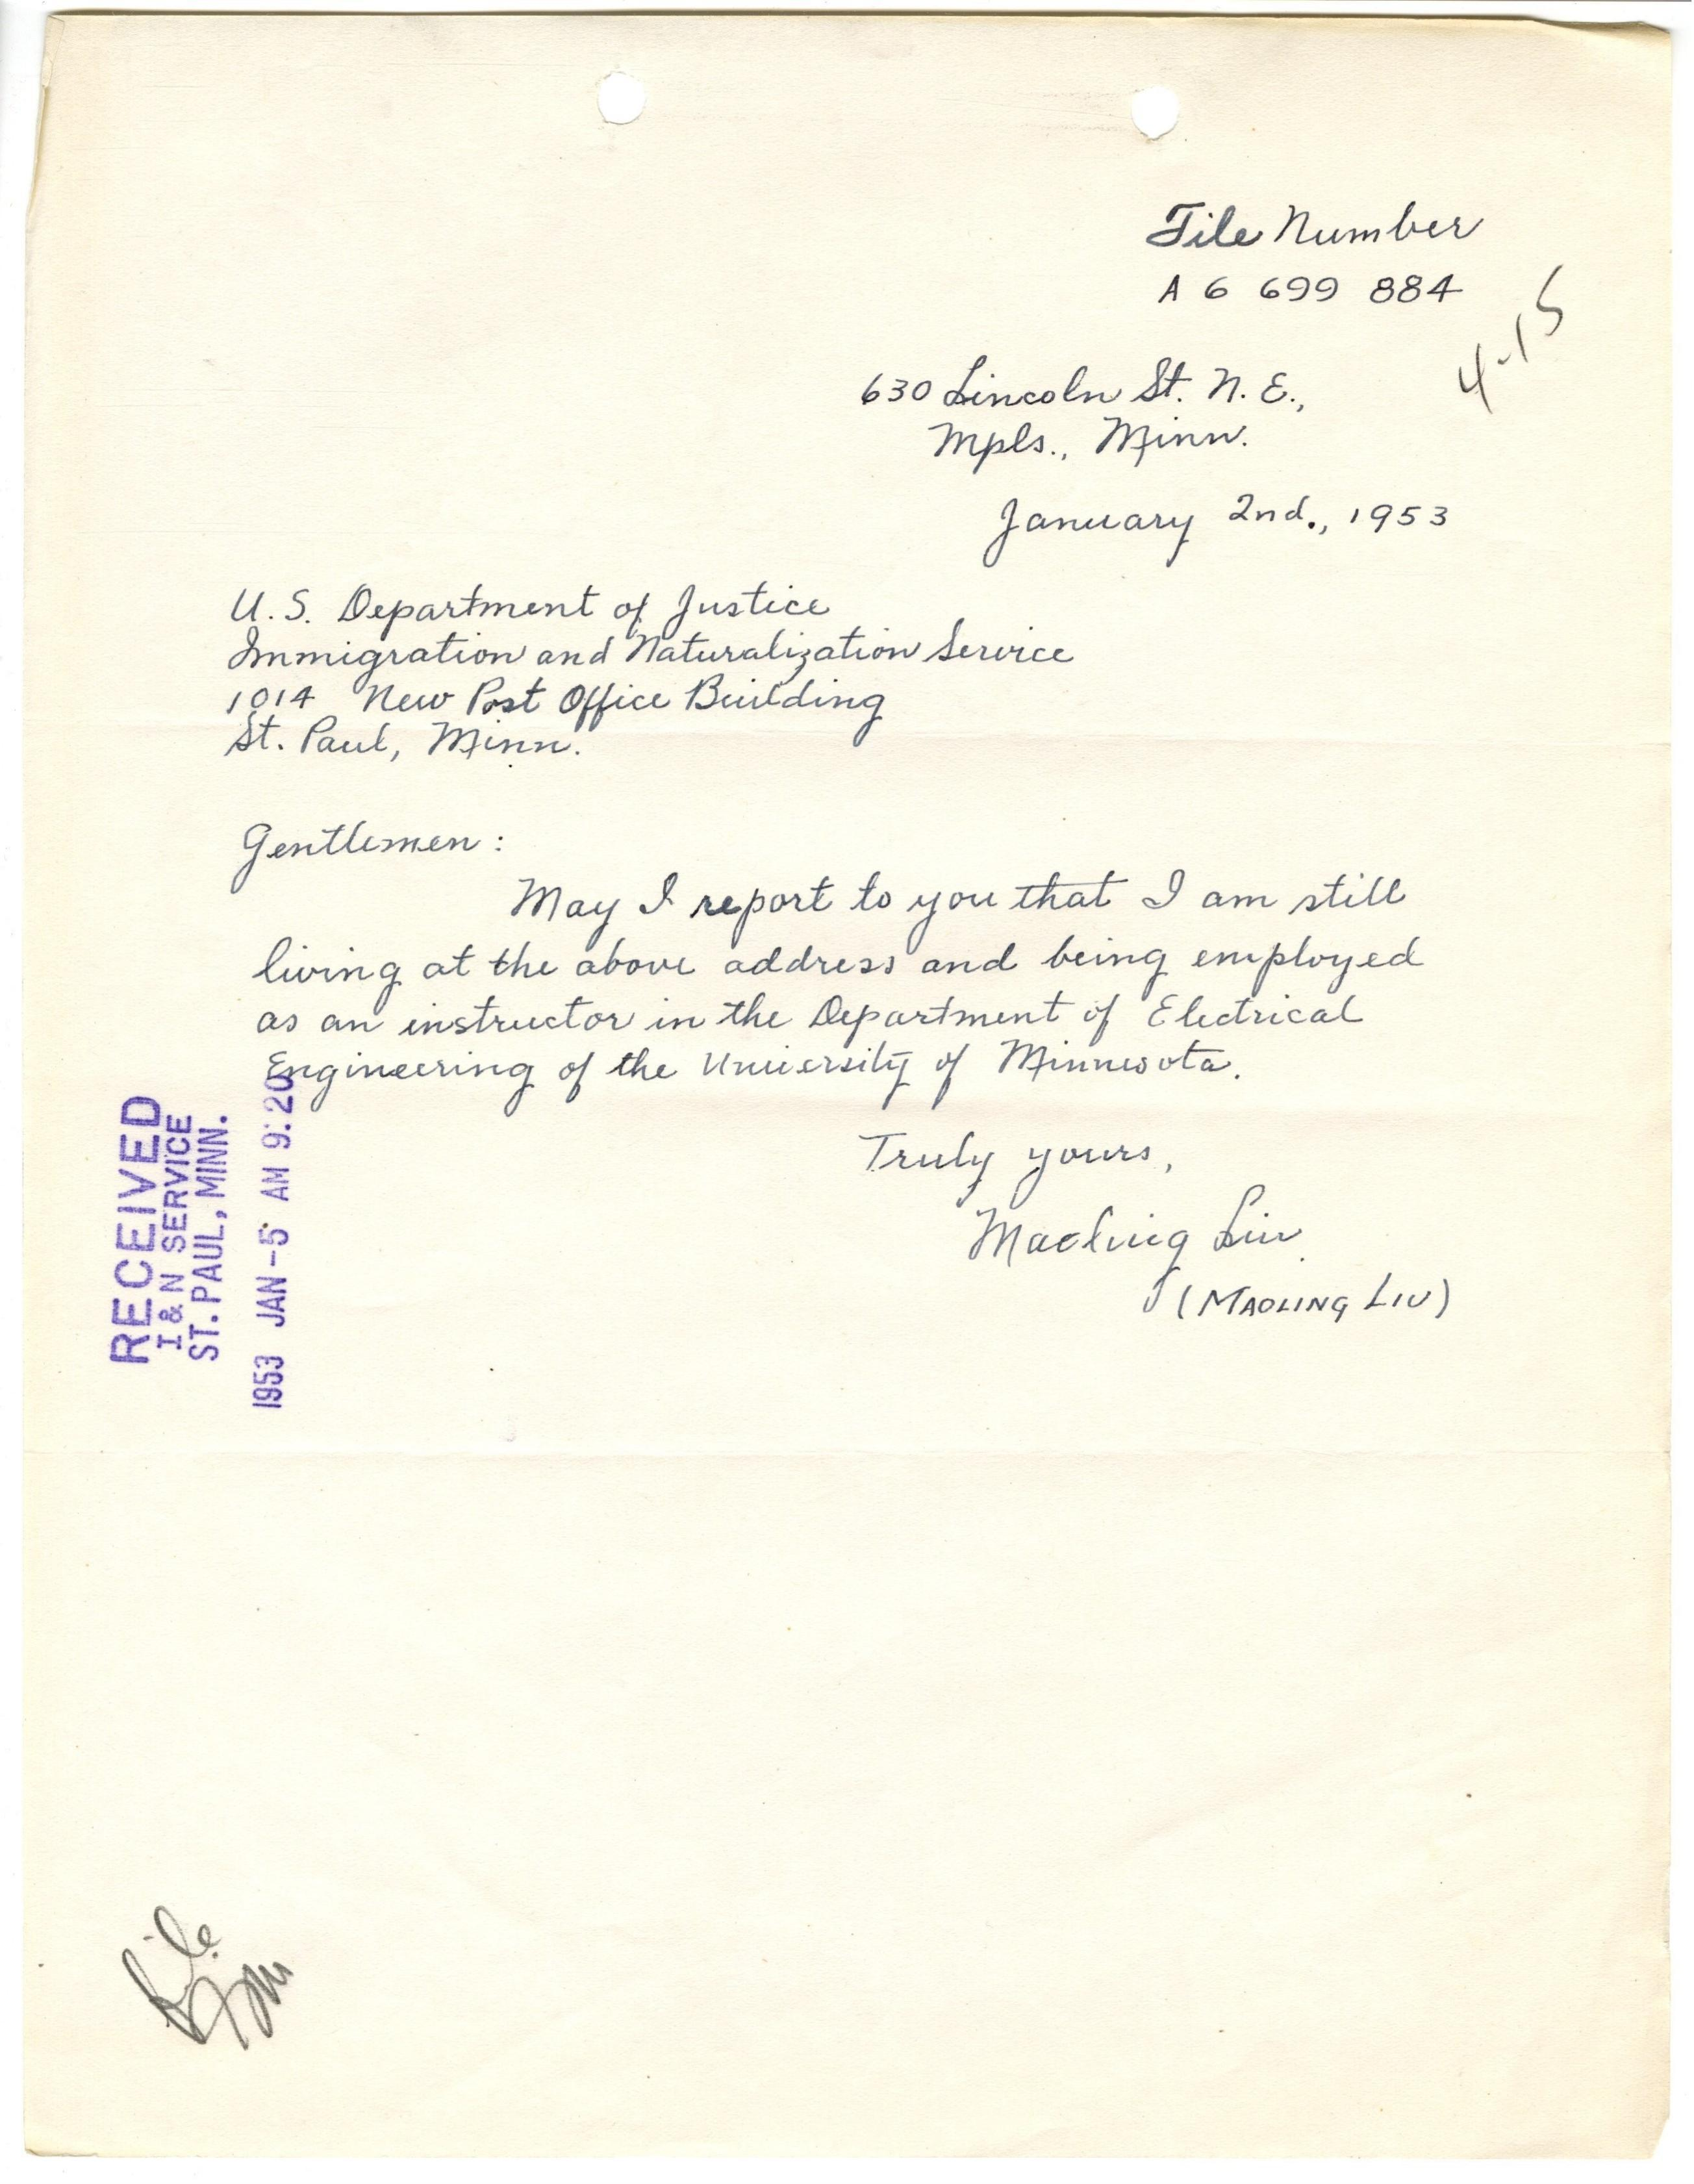 File Number
A 6 699 884
4-15
630 Lincoln St. N. E.,
Mpls., Minn.
January 2nd., 1953
U. S. Department of Justice
Immigration and Naturalization Service
1014 New Post Office Building
St. Paul, Minn.
Gentlemen:
May I report to you that I am still
living at the above address and being employed
as an instructor in the Department of Electrical
Engineering of the University of Minnesota.
Truly yours,
Maoling Liu
(MAOLING LIU)
RECEIVED
I & N SERVICE
ST. PAUL, MINN.
1953 JAN -5 AM 9:20
File